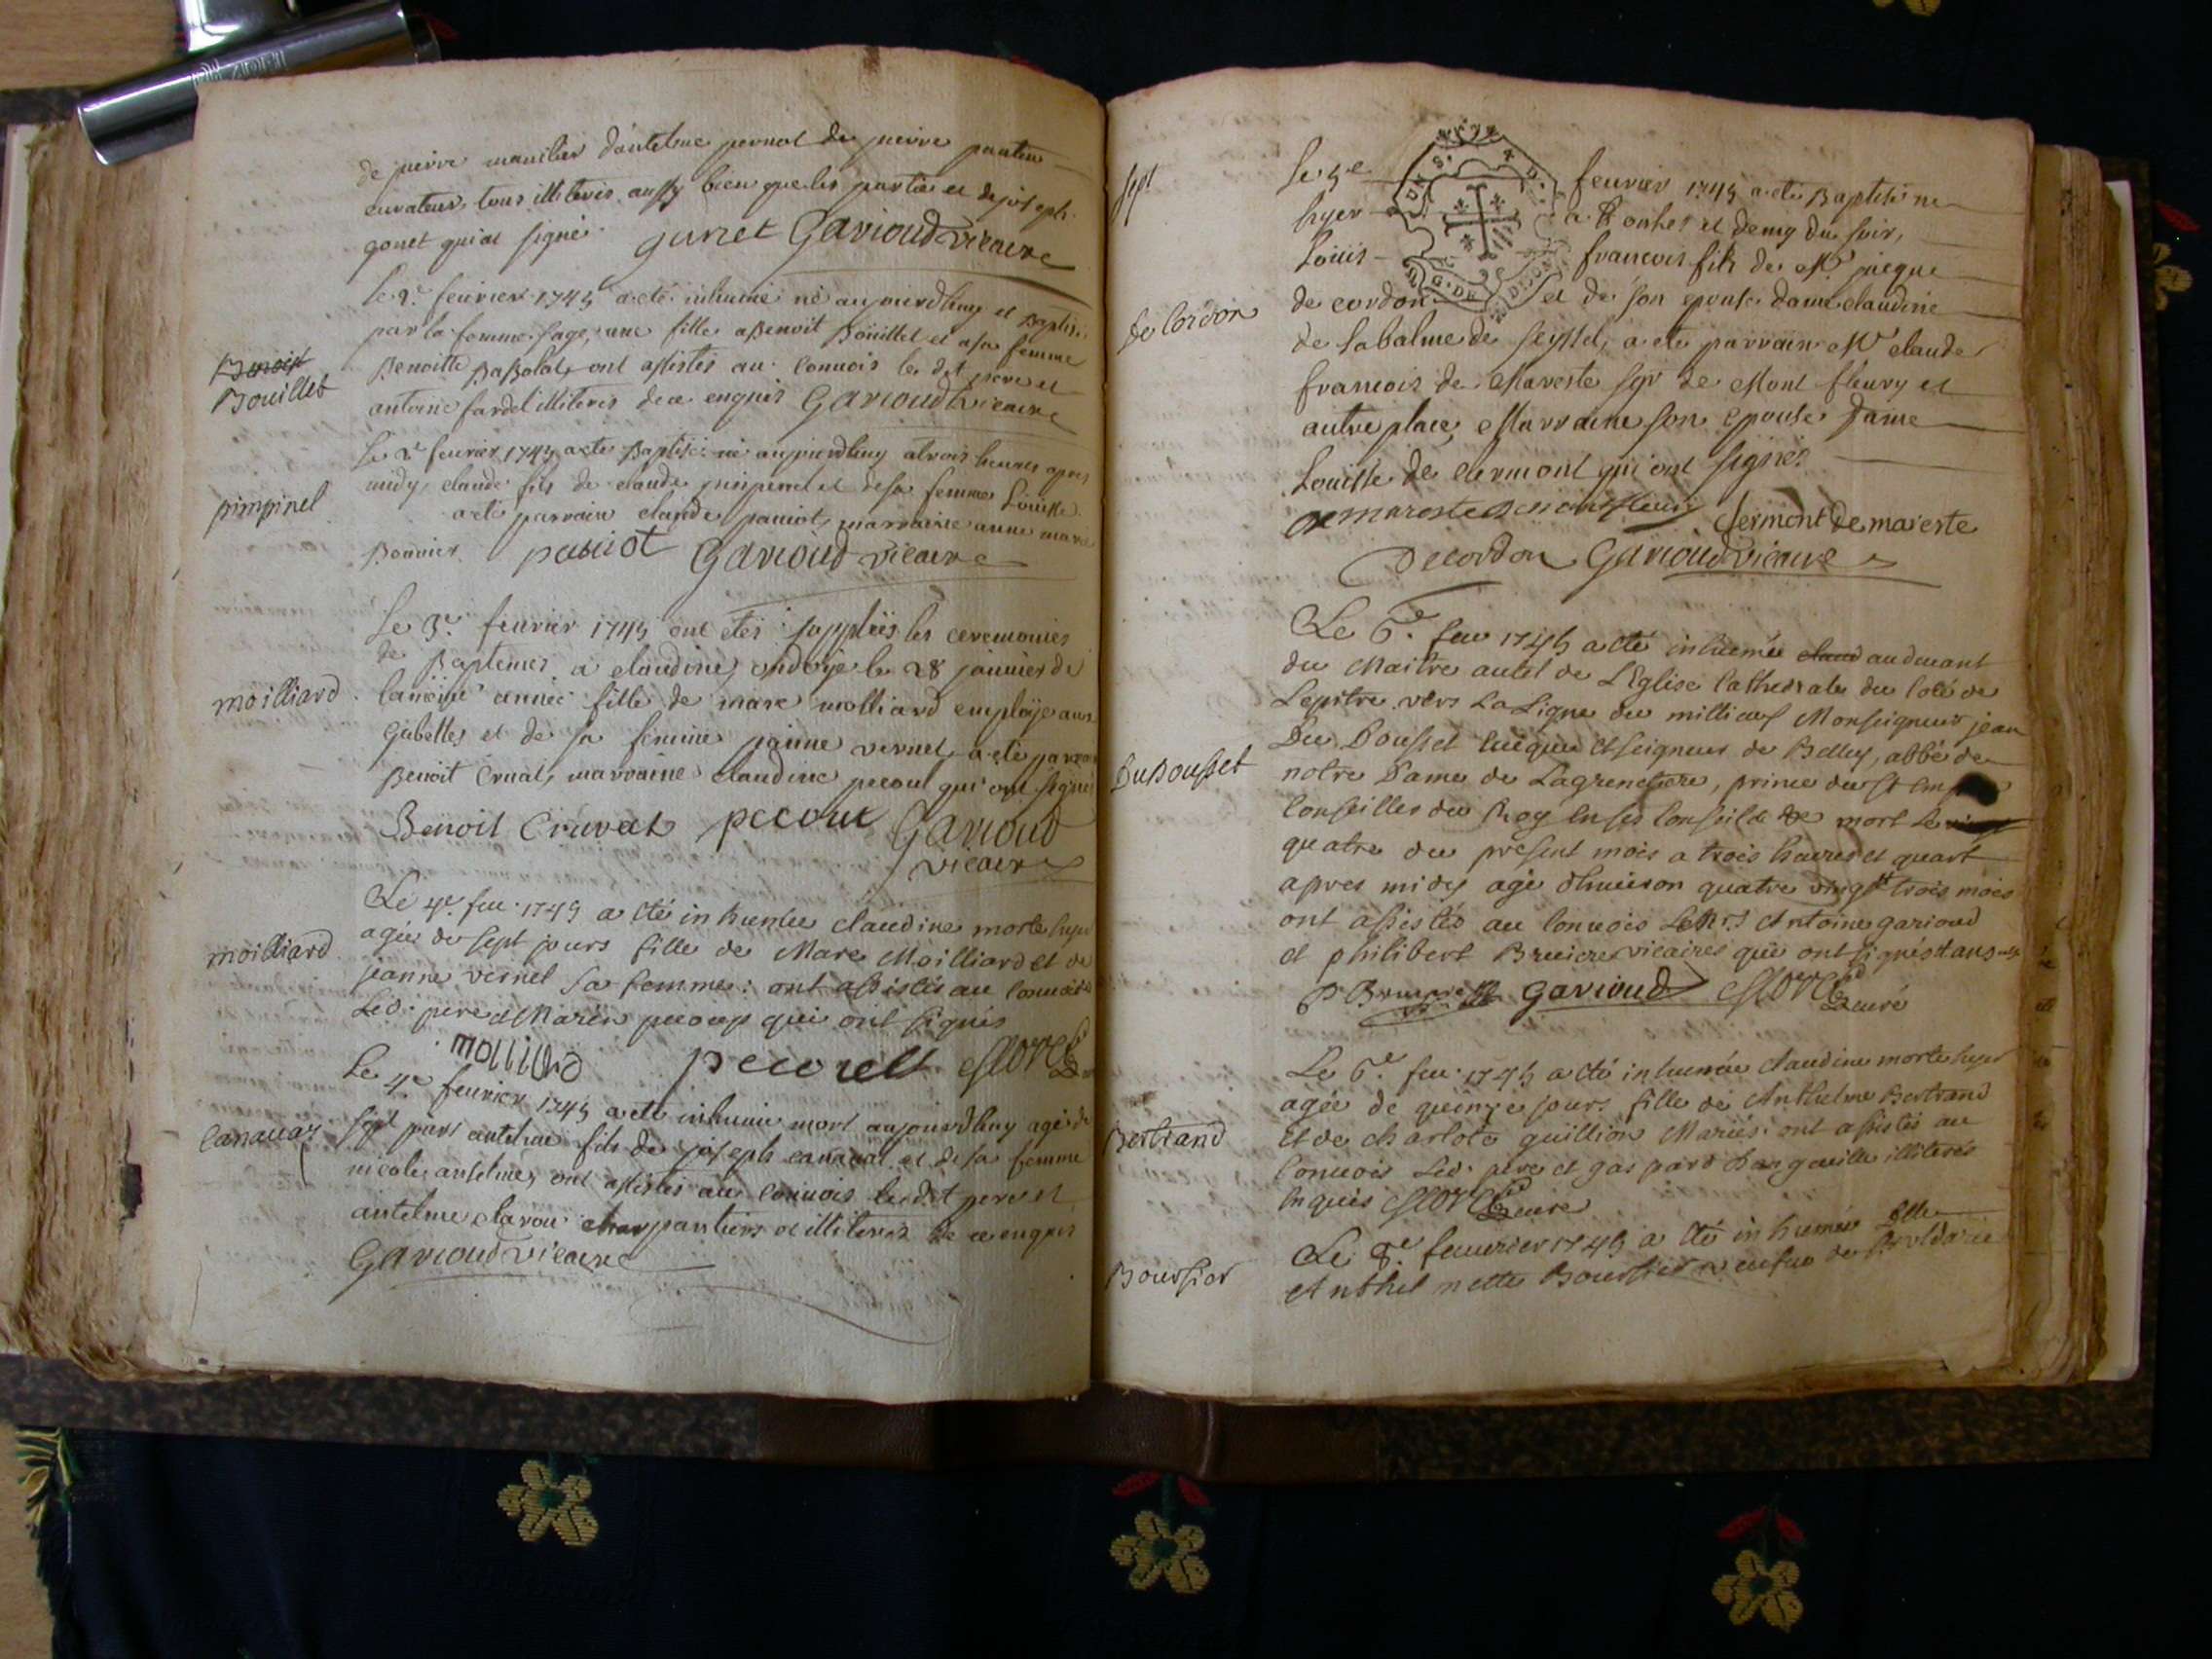 de pierre
curateur, tous illiterés aussy bien que les parties et de joseph
gonet qui at signé. gunet Garioud vicaire
Le 2e fevrier 1745 a eté inhumé né aujourdhuy et Baptisé
par la femme sage, une fille a Benoit Boüillet et a sa femme
Benoitte ont assistés au convois le dit pere et
antoine fardel illiterés de ce enquis Garioud vicaire
Bouillet
Le 2e fevrier 1745 a eté Baptisé né aujourdhuy a trois heures apres
midy, claude fils de claude pimpinel et de sa femme Louisse
a eté parrain claude paviot, marraine anne marie
Bonnier. paviot Garioud vicaire
pimpinel
Le 3e fevrier 1745 ont etés supplëés les ceremonies
de Baptemes a claudine ondoÿe le 28 janvier de
la même année fille de marc molliard employe aux
Gabelles et de sa femme janne vernel, a eté parrain
Benoit Cruat, marraine claudine pecoul qui ont signés
Benoit Cruvat pecoul Garioud
vicaire
moilliard
Le 4e feu. 1745 a été inhumée claudine morte hyer
agée de sept jours fille de Marc Moilliard et de
jeanne vernel sa femme: ont assistés au convois
Led. pere et qui ont signés
moilliard
Le 4e fevrier 1745 a eté inhumé mort aujourdhuy agé de
sept jours antelme fils de joseph canavat et de sa femme
nicole anselme, ont assistés au convois le dit pere et
antelme clavou charpantiers et illiterés de ce enquis
Garioud vicaire
Canavaz
sept
Le 5e fevrier 1745 a eté Baptisé né
hyer a onhes et demy du soir,
Louis francois fils de Mr jacque
de cordon et de son epouse dame claudine
de Labalme de seyssel, a eté parrain Mr claude
francois de Mareste sgr de Mont fleury et
autre place, Marraine son epouse Dame
Louisse de clermont qui ont signés.
clermont de mareste
Decordon Garioud vicaire
de Cordon
Le 6e feu 1745 a été inhumée au devant
du Maitre autel de L'Eglise Cathedrale du coté de
Lepitre vers La Ligne du millieu Monseigneur jean
Du Dousset Eveque et seigneur de Belley, abbé de
notre Dame de Lagrenetiere, prince du St
Conseiller du Roy en ses Conseils mort le
quatre du present mois a trois heures et quart
apres midy agé d'huiron quatre vingt trois mois
ont assistés au convois Les Antoine garioud
et philibert Bruiere vicaires qui ont signés
garioud curé
DuDousset
Le 6e feu. 1745 a été inhumée claudine morte hyer
agée de quinze jours fille de Anthelme Bertrand
et de charlote quillion Mariés: ont assistés au
convois Led. pere et gaspard illiterés
enquis curé
Bertrand
Le 8e feuvrier 1745 a été inhumée
Anthelmette Boursier
Boursier